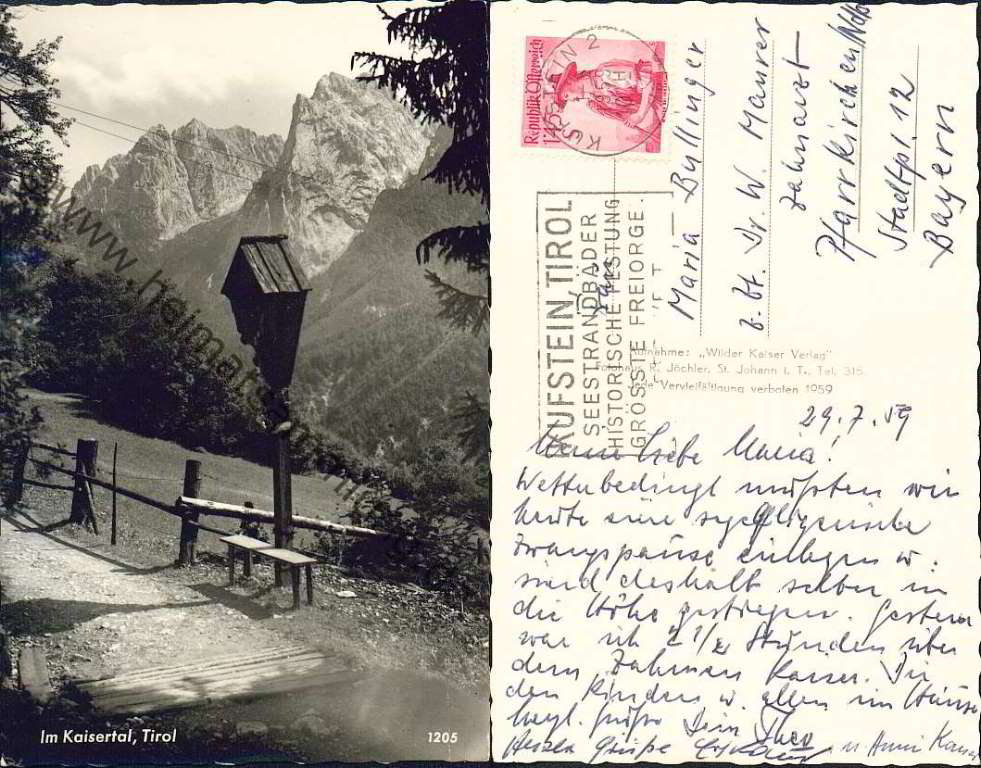 www.heimat
Im Kaisertal, Tirol
1205
Republik Österreich
1'45 S
KUFSTEIN 2
KUFSTEIN TIROL
SEESTRANDBÄDER
HISTORISCHE FESTUNG
GRÖSSTE FREIORGEL
Maria Bullinger
b. Dr. W. Maurer
Zahnarzt
Pfarrkirchen/Ndb
Stadtpl. 12
Bayern
Aufnahme: „Wilder Kaiser Verlag"
Fotohaus R. Jöchler, St. Johann i. T., Tel. 315.
Jede Vervielfältigung verboten 1959
29.7.59
Liebe Maria!
Wetterbedingt mußten wir
heute eine segelfliegerische
Zwangspause einlegen u.
sind deshalb selber in
die Höhe gestiegen. Gestern
war ich 2 1/2 Stunden über
dem Zahmen Kaiser. Dir
den Kindern u. allen im Hause
herzl. Grüße Dein Theo
Herzl. Grüße u. Anni Kaiser